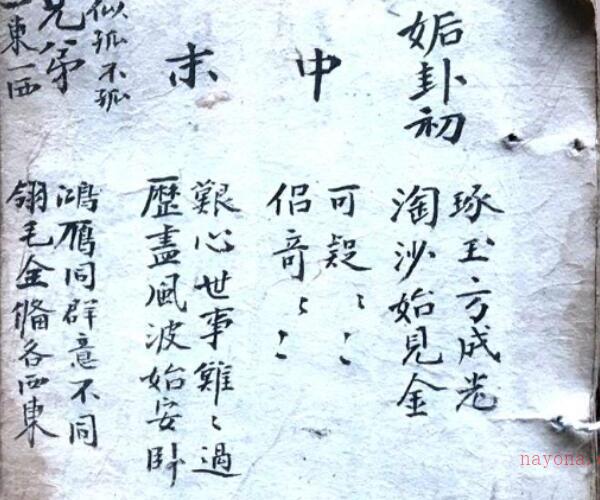 姤卦初
琢玉方成光
淘沙始見金
中
可疑〻〻
侣奇〻〻
末
艱心世事難〻過
歷盡風波始安卧
似孤不孤
兄弟
一東一西
鴻雁同群意不同
翎毛全俻各西東
nayona.